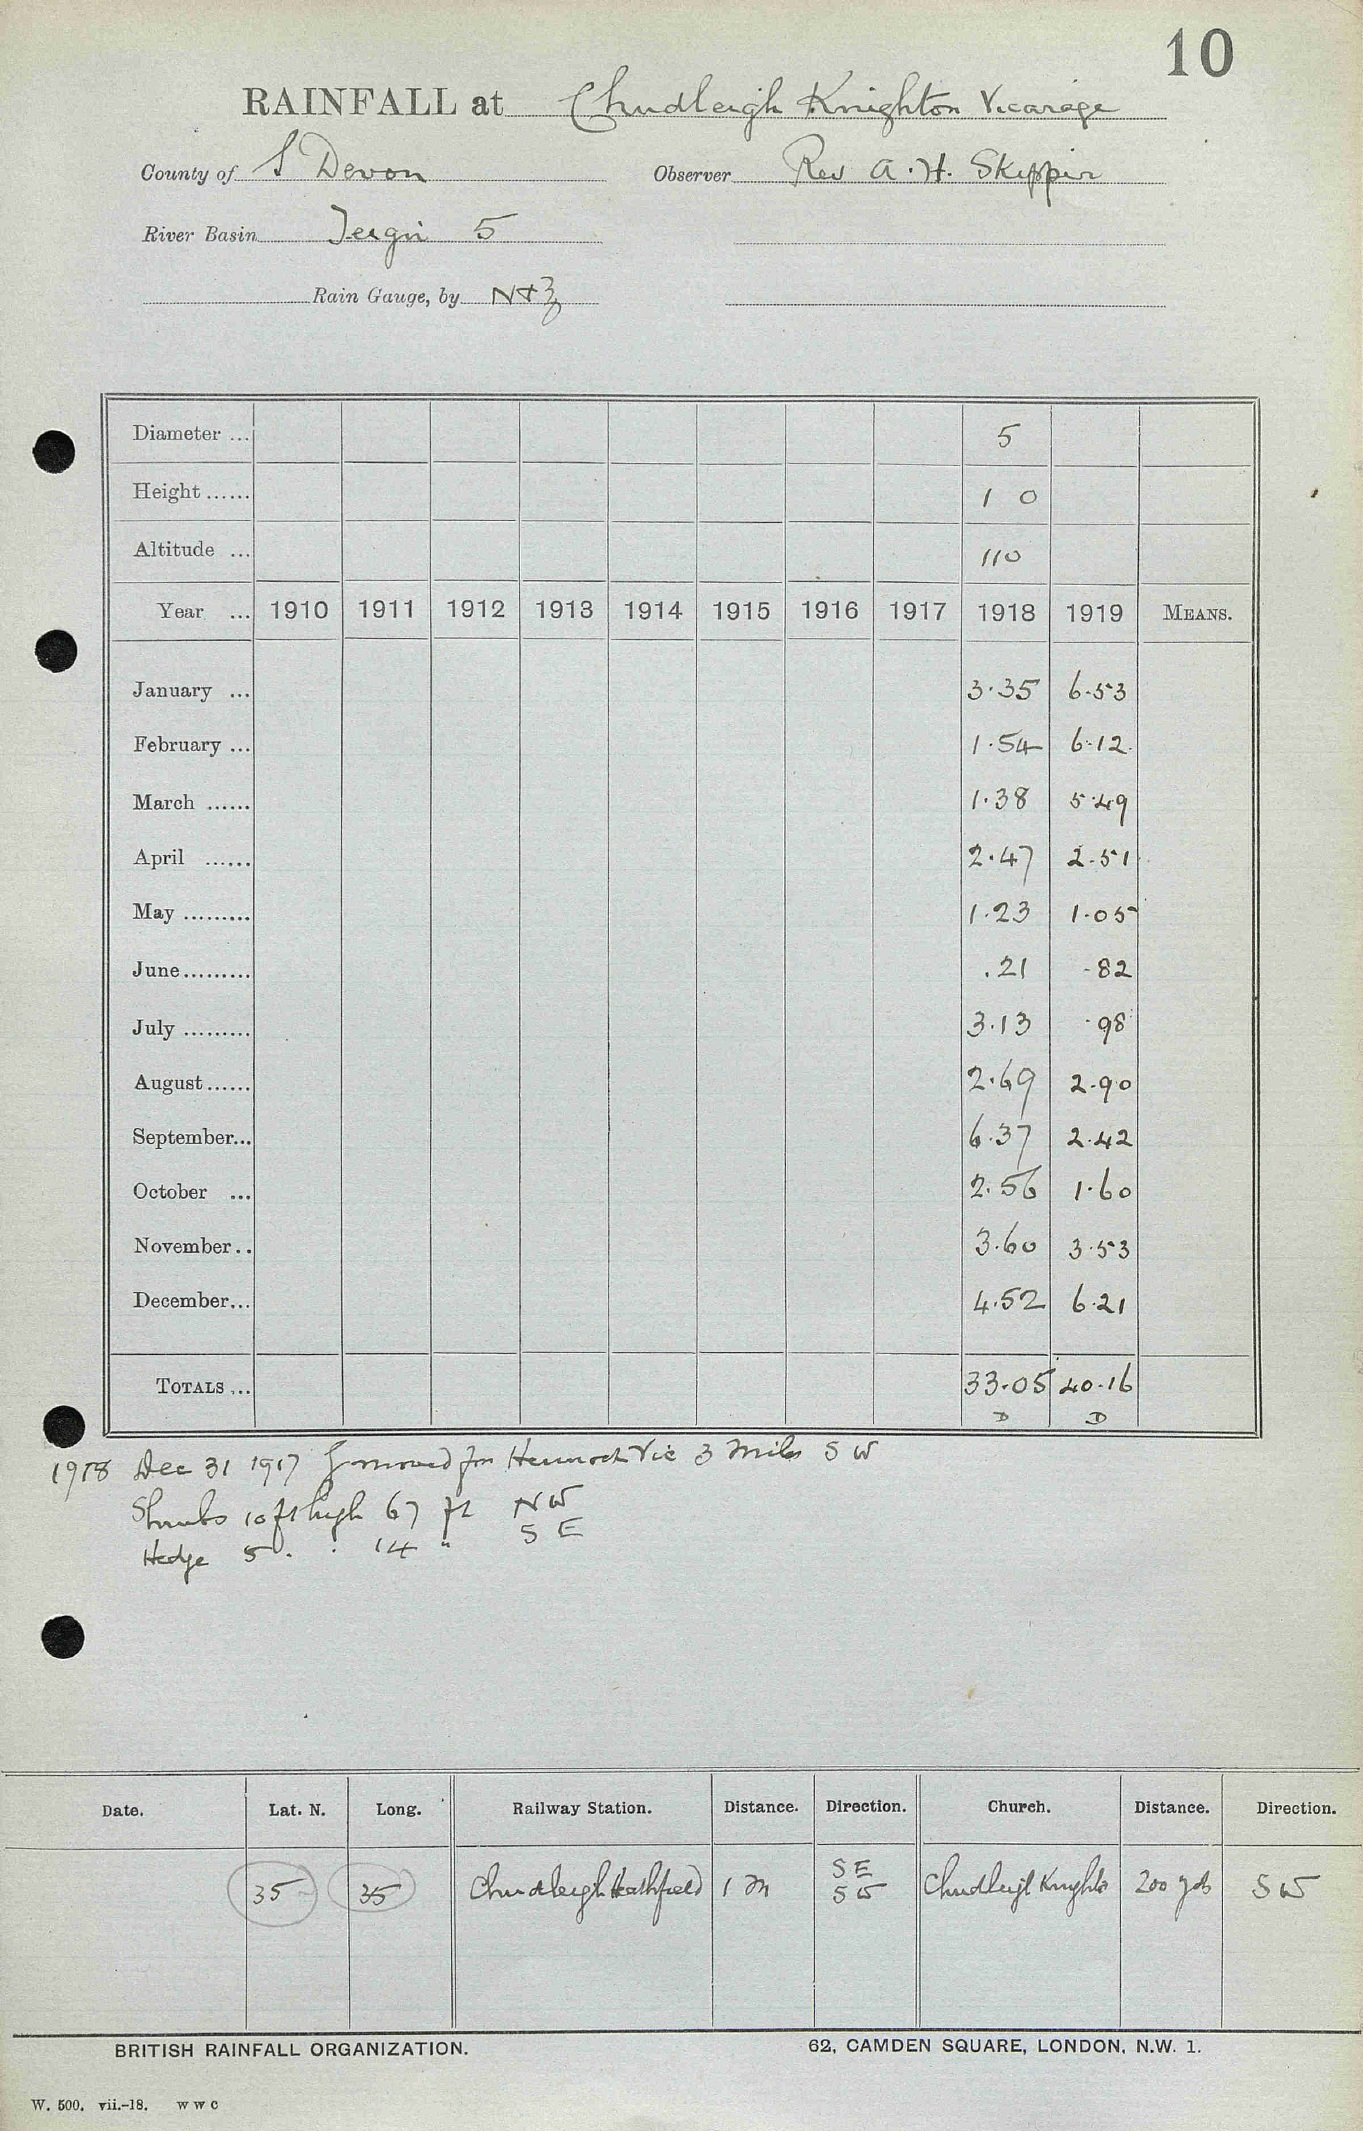 10
RAINFALL at Chudleigh Knighton Vicarage
County of S Devon Observer Rev A. H. Skipper
River Basin Teign 5
Rain Gauge, by N+Z
Diameter ... 5
Height ...... 1 0
Altitude ... 110
Year ... 1910 1911 1912 1913 1914 1915 1916 1917 1918 1919 MEANS.
January ... 3.35 6.53
February ... 1.54 6.12
March ...... 1.38 5.49
April ...... 2.47 2.51
May ......... 1.23 1.05
June......... .21 .82
July ......... 3.13 .98
August...... 2.69 2.90
September... 6.37 2.42
October ... 2.56 1.60
November.. 3.60 3.53
December... 4.52 6.21
TOTALS ... 33.05 40.16
D D
1918 Dec 31 1917 G moved fm Hennock Vic 3 Miles S W
Shrubs 10 ft high 67 ft N W
Hedge 5 . . 14 " S E
Date. Lat. N. Long. Railway Station. Distance. Direction. Church. Distance. Direction.
35 35 Chudleigh Heathfield 1 m S E S W Chudleigh Knighto 200 yds S W
BRITISH RAINFALL ORGANIZATION. 62, CAMDEN SQUARE, LONDON, N.W. 1.
W. 500. vii.-18. W W C